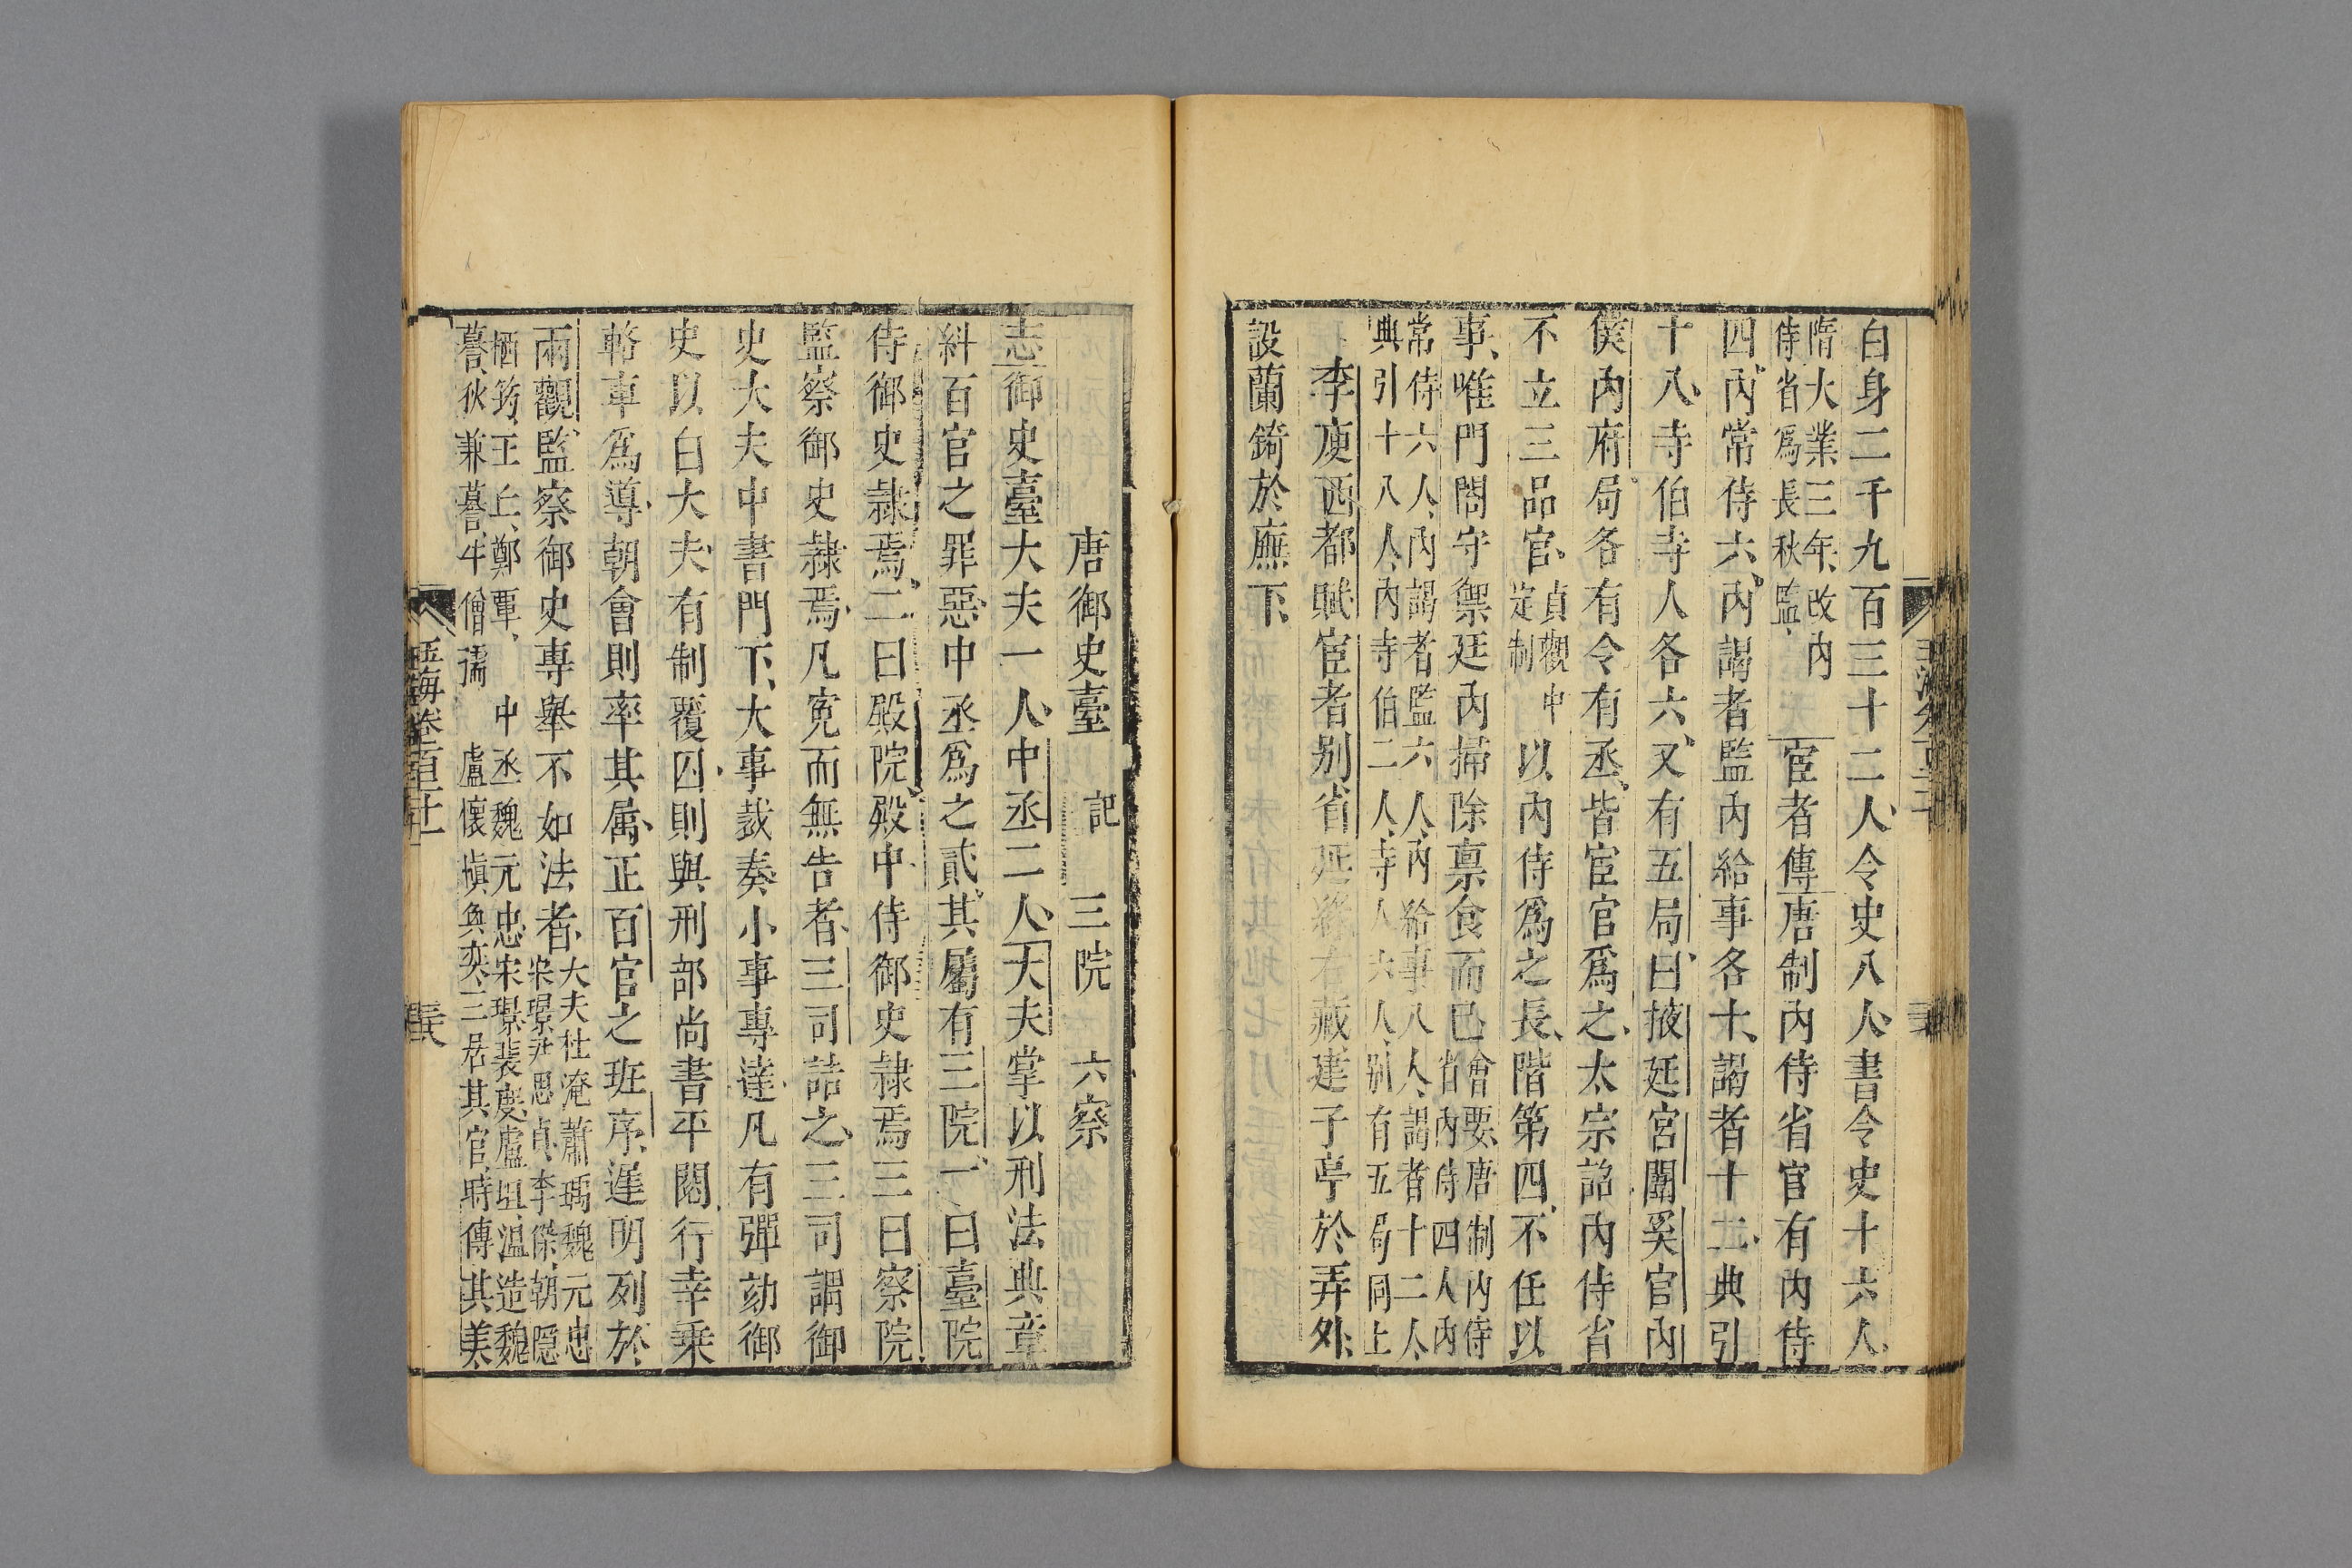 白身二千九百三十二人令史八人書令史十六人
隋大業三年改內
侍省爲長秋監
宦者傳唐制內侍省官有內侍
四內常侍六內謁者監內給事各十謁者十二典引
十八寺伯寺人各六又有五局曰掖廷宮闈奚官內
僕內府局各有令有丞皆宦官爲之太宗詔內侍省
不立三品官
貞觀中
定制
以內侍爲之長階第四不任以
事唯門閤守禦廷內掃除禀食而已
會要唐制內侍
省內侍四人內
常侍六人內謁者監六人內給事八人謁者十二人
典引十八人內寺伯二人寺人六人別有五局同上
李庾西都賦宦者別省延緣右藏建子亭於弄外
設蘭錡於廡下
唐御史臺 記 三院 六察
志御史臺大夫一人中丞二人大夫掌以刑法典章
糾百官之罪惡中丞爲之貳其屬有三院一曰臺院
侍御史隷焉二曰殿院殿中侍御史隷焉三曰察院
監察御史隷焉凡冤而無告者三司詰之三司謂御
史大夫中書門下大事裁奏小事專達凡有彈劾御
史以白大夫有制覆囚則與刑部尚書平閱行幸乗
輅車爲導朝會則率其属正百官之班序遲明列於
兩觀監察御史專舉不如法者
大夫杜淹蕭瑀魏元忠
宋璟尹思貞李傑朝隱
栖筠王丘鄭覃 中丞魏元忠宋璟裴度盧坦溫造魏
謩狄兼謩牛僧孺 盧懷愼奐奕三居其官時傳其美
玉海卷一百二十一